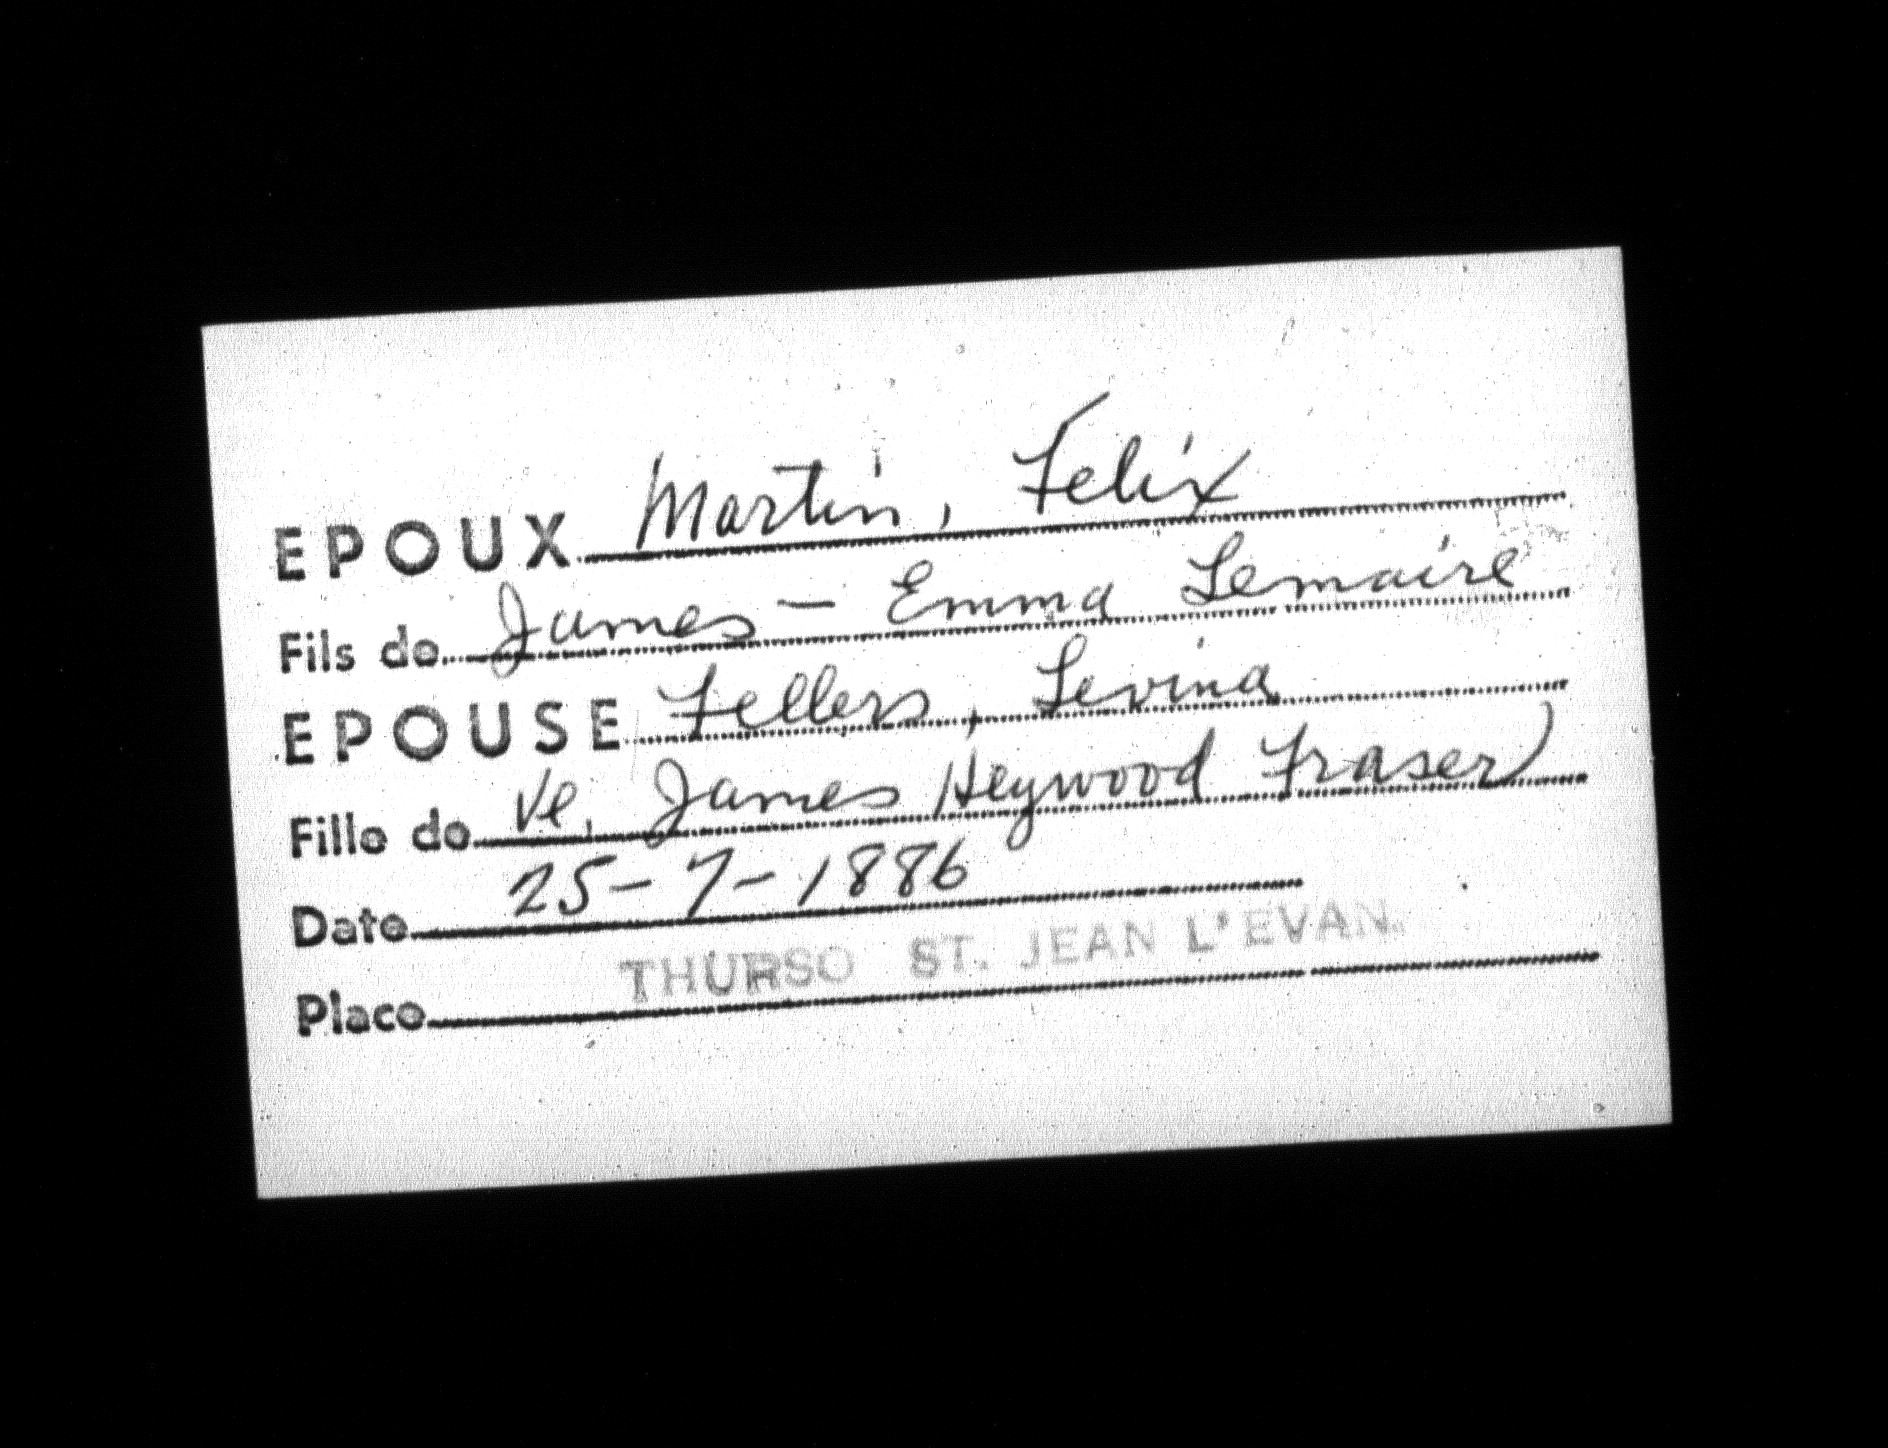 EPOUX Martin, Felix
Fils de James — Emma Lemaire
EPOUSE Fellers, Levina
Fille de Ve. James Heywood Fraser)
Date 25-7-1886
Place THURSO ST. JEAN L'EVAN.